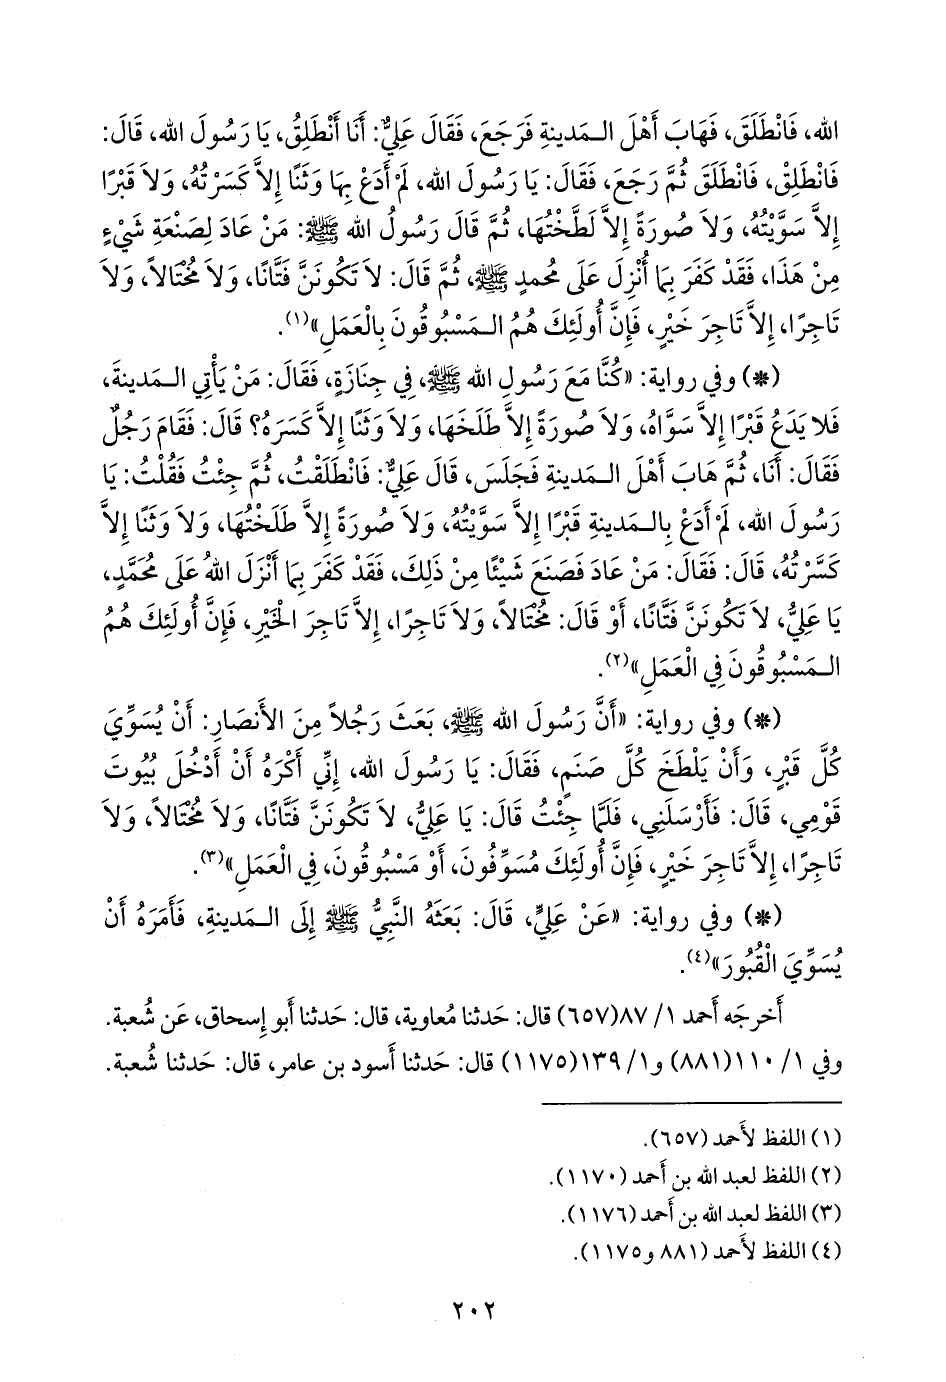 الله، فَانْطَلَقَ، فَهَابَ أَهْلَ الـمَدينةِ فَرَجَعَ، فَقَالَ عَلِيٌّ: أَنَا أَنْطَلِقُ، يَا رَسُولَ الله، قَالَ:
فَانْطَلِقْ، فَانْطَلَقَ ثُمَّ رَجَعَ، فَقَالَ: يَا رَسُولَ الله، لَمْ أَدَعْ بِهَا وَثَنًا إِلاَّ كَسَرْتُهُ، وَلاَ قَبْرًا
إِلاَّ سَوَّيْتُهُ، وَلاَ صُورَةً إِلاَّ لَطَّخْتُهَا، ثُمَّ قَالَ رَسُولُ الله ﷺ: مَنْ عَادَ لِصَنْعَةِ شَيْءٍ
مِنْ هَذَا، فَقَدْ كَفَرَ بِمَا أُنْزِلَ عَلَى محُمدٍ ﷺ، ثُمَّ قَالَ: لاَ تَكُونَنَّ فَتَّانًا، وَلاَ مُخْتَالاً، وَلاَ
تَاجِرًا، إِلاَّ تَاجِرَ خَيْرٍ، فَإِنَّ أُولَئِكَ هُمُ الـمَسْبُوقُونَ بِالْعَمَلِ»(١).
(*) وفي رواية: «كُنَّا مَعَ رَسُولِ الله ﷺ، فِي جِنَازَةٍ، فَقَالَ: مَنْ يَأْتِي الـمَدينةَ،
فَلا يَدَعُ قَبْرًا إِلاَّ سَوَّاهُ، وَلاَ صُورَةً إِلاَّ طَلَخَهَا، وَلاَ وَثَنًا إِلاَّ كَسَرَهُ؟ قَالَ: فَقَامَ رَجُلٌ
فَقَالَ: أَنَا، ثُمَّ هَابَ أَهْلَ الـمَدينةِ فَجَلَسَ، قَالَ عَلِيٌّ: فَانْطَلَقْتُ، ثُمَّ جِئْتُ فَقُلْتُ: يَا
رَسُولَ الله، لَمْ أَدَعْ بِالـمَدينةِ قَبْرًا إِلاَّ سَوَّيْتُهُ، وَلاَ صُورَةً إِلاَّ طَلَخْتُهَا، وَلاَ وَثَنًا إِلاَّ
كَسَّرْتُهُ، قَالَ: فَقَالَ: مَنْ عَادَ فَصَنَعَ شَيْئًا مِنْ ذَلِكَ، فَقَدْ كَفَرَ بِمَا أَنْزَلَ اللهُ عَلَى مُحَمَّدٍ،
يَا عَلِيُّ، لاَ تَكُونَنَّ فَتَّانًا، أَوْ قَالَ: مُخْتَالاً، وَلاَ تَاجِرًا، إِلاَّ تَاجِرَ الخَيْرِ، فَإِنَّ أُولَئِكَ هُمُ
الـمَسْبُوقُونَ فِي الْعَمَلِ»(٢).
(*) وفي رواية: «أَنَّ رَسُولَ الله ﷺ، بَعَثَ رَجُلاً مِنَ الأَنصَارِ: أَنْ يُسَوِّيَ
كُلَّ قَبْرٍ، وَأَنْ يَلْطَخَ كُلَّ صَنَمٍ، فَقَالَ: يَا رَسُولَ الله، إِنِّي أَكْرَهُ أَنْ أَدْخُلَ بُيُوتَ
قَوْمِي، قَالَ: فَأَرْسَلَنِي، فَلَمَّا جِئْتُ قَالَ: يَا عَلِيُّ، لاَ تَكُونَنَّ فَتَّانًا، وَلاَ مُخْتَالاً، وَلاَ
تَاجِرًا، إِلاَّ تَاجِرَ خَيْرٍ، فَإِنَّ أُولَئِكَ مُسَوِّفُونَ، أَوْ مَسْبُوقُونَ، فِي الْعَمَلِ»(٣).
(*) وفي رواية: «عَنْ عَلِيٍّ، قَالَ: بَعَثَهُ النَّبِيُّ ﷺ إِلَى الـمَدينةِ، فَأَمَرَهُ أَنْ
يُسَوِّيَ الْقُبُورَ»(٤).
أَخرجَه أَحمد ١/ ٨٧(٦٥٧) قال: حَدثنا مُعاوية، قال: حَدثنا أَبو إِسحاق، عَن شُعبة.
وفي ١/ ١١٠(٨٨١) و١/ ١٣٩(١١٧٥) قال: حَدثنا أَسود بن عامر، قال: حَدثنا شُعبة.
(١) اللفظ لأَحمد (٦٥٧).
(٢) اللفظ لعبد الله بن أَحمد (١١٧٠).
(٣) اللفظ لعبد الله بن أَحمد (١١٧٦).
(٤) اللفظ لأَحمد (٨٨١ و١١٧٥).
٢٠٢